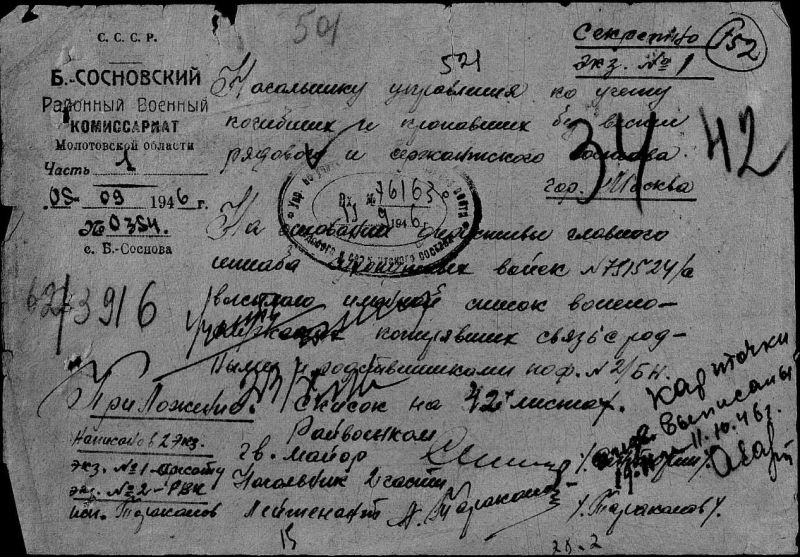 501
С. С. С. Р.
Б.-СОСНОВСКИЙ
Районный Военный
КОМИССАРИАТ
Молотовской области
Часть 1
05 - 09 1946 г.
№ 0354
с. Б.-Соснова
Секретно
экз. № 1
152
521
Начальнику управления по учету
погибших и пропавших без вести
рядового и сержантского состава
гор. Москва
34 42
Вх. № 76163
9 1946 г.
На основании директивы главного
штаба сухопутных войск № 751524/а
высылаю именной список военно-
потерявших связь с род-
ными и родственниками по ф. № 2/БН.
62/3916
Приложение: Список на 42х листах.
Карточки
выписаны
11.10.46 г.
Написано в 2 экз.
экз. № 1 -
экз. № 2 - РВК
исп. Тараканов
Райвоенком
гв. майор
Начальник 2 части
Лейтенант А. Тараканов /Тараканов/.
15
28.2